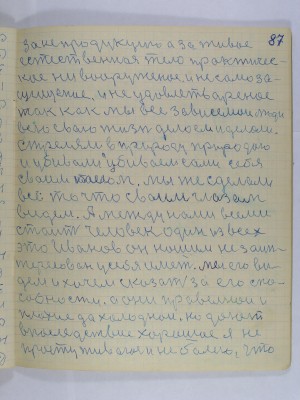 87
за не продукцию а за живое
естественная тело практичес-
кое, ни вооруженое, и не само за-
щищение, и не удовлетвареное
так как мы все зависемои люди
всю свою жизнь делоем и делоем.
стреляли в природу природою
и убивали убиваем сами себя
своим телом, мы же сделали
всё то что своими глазам
видем. А между нами всеми
стоит человек один из всех
это Иванов он ношим не заин-
тересован, себя имет. мы его ви-
дем и хочем сказат за его спо-
собности, а они правелнои и
плохие да холоднои, но дают
впоследствие хорошае я не
простуживаюс и не болею, что